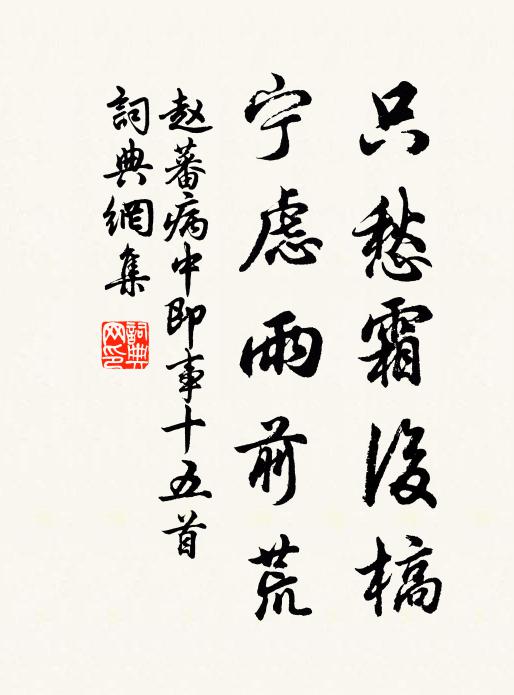 只愁霜後槁
宁虑雨前荒
赵蕃病中即事十五首
詞典網集
詞典
网印